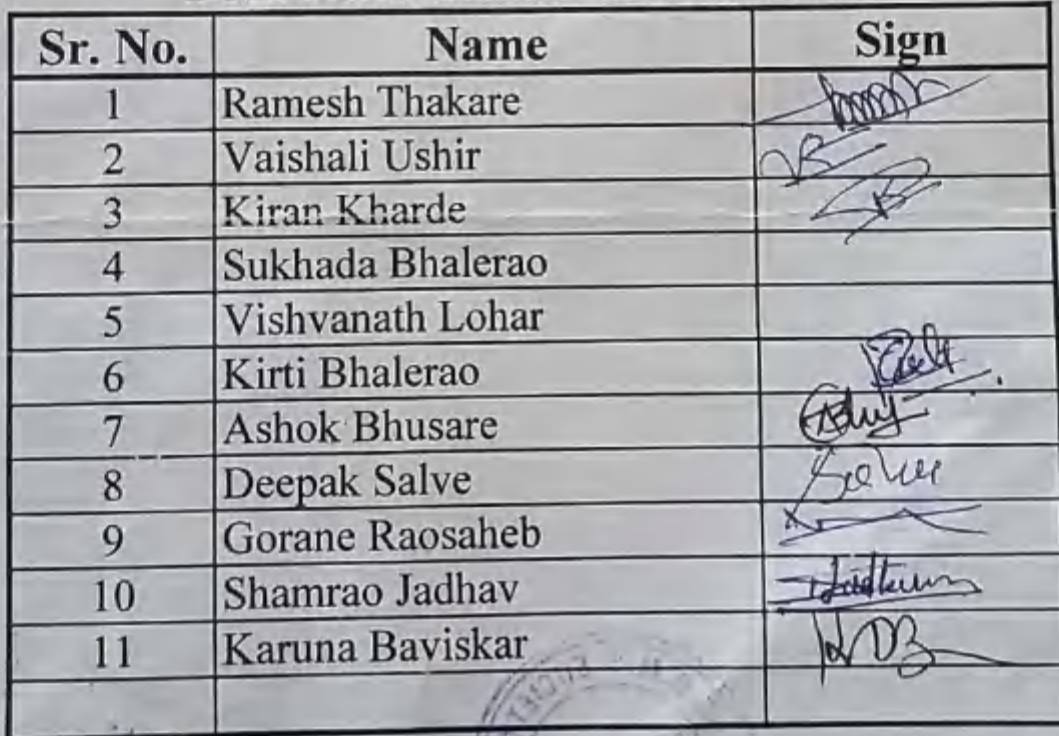 Sr. No. Name Sign
1 Ramesh Thakare
2 Vaishali Ushir
3 Kiran Kharde
4 Sukhada Bhalerao
5 Vishvanath Lohar
6 Kirti Bhalerao
7 Ashok Bhusare
8 Deepak Salve Salve
9 Gorane Raosaheb
10 Shamrao Jadhav
11 Karuna Baviskar KDB